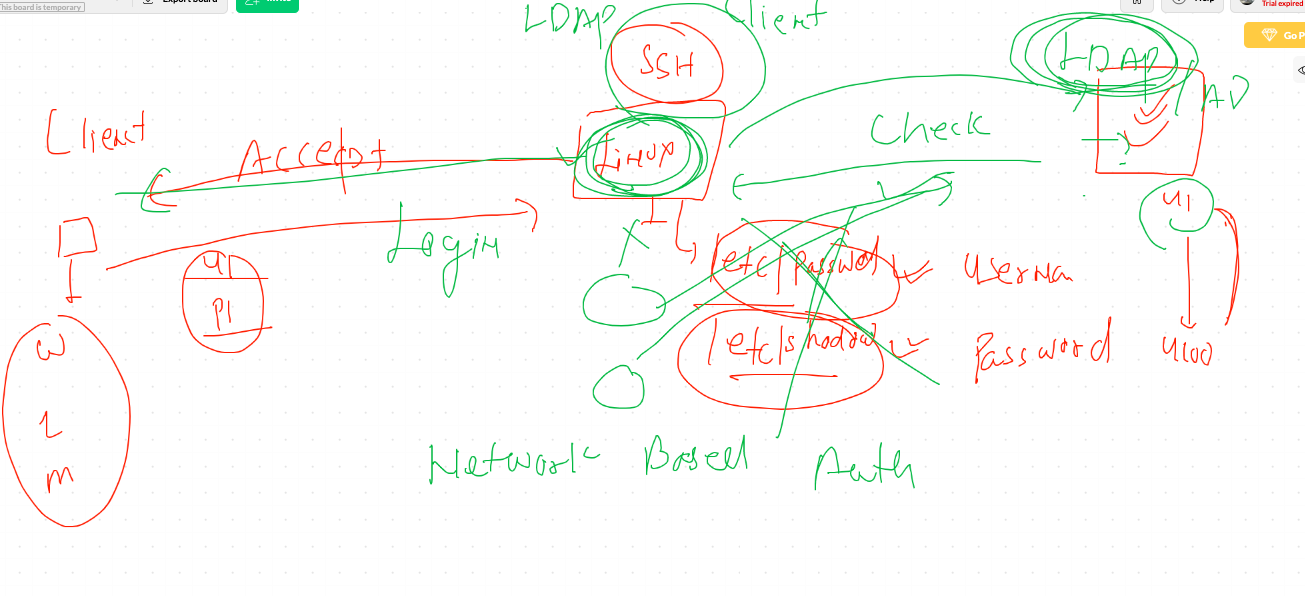 This board is temporary
Export board
Help
Trial expired
Go P
LDAP Client
SSH
LDAP
AD
Client
Accept
Linux
Check
Login
U1
P1
U1
/etc/passwd
Userna
/etc/shadow
Password
U100
W
L
m
Network Based Auth